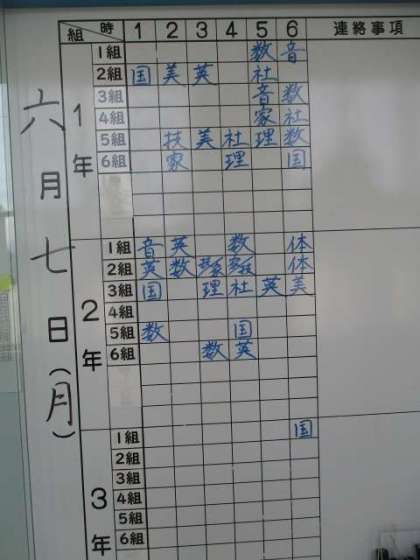 六月七日(月)
組 時 1 2 3 4 5 6 連絡事項
1年
1組 数 音
2組 国 美 英 社
3組 音 数
4組 家 社
5組 技 美 社 理 数
6組 家 理 国
2年
1組 音 英 数 体
2組 英 数 体
3組 国 理 社 英 美
4組
5組 数 国
6組 数 英
3年
1組 国
2組
3組
4組
5組
6組